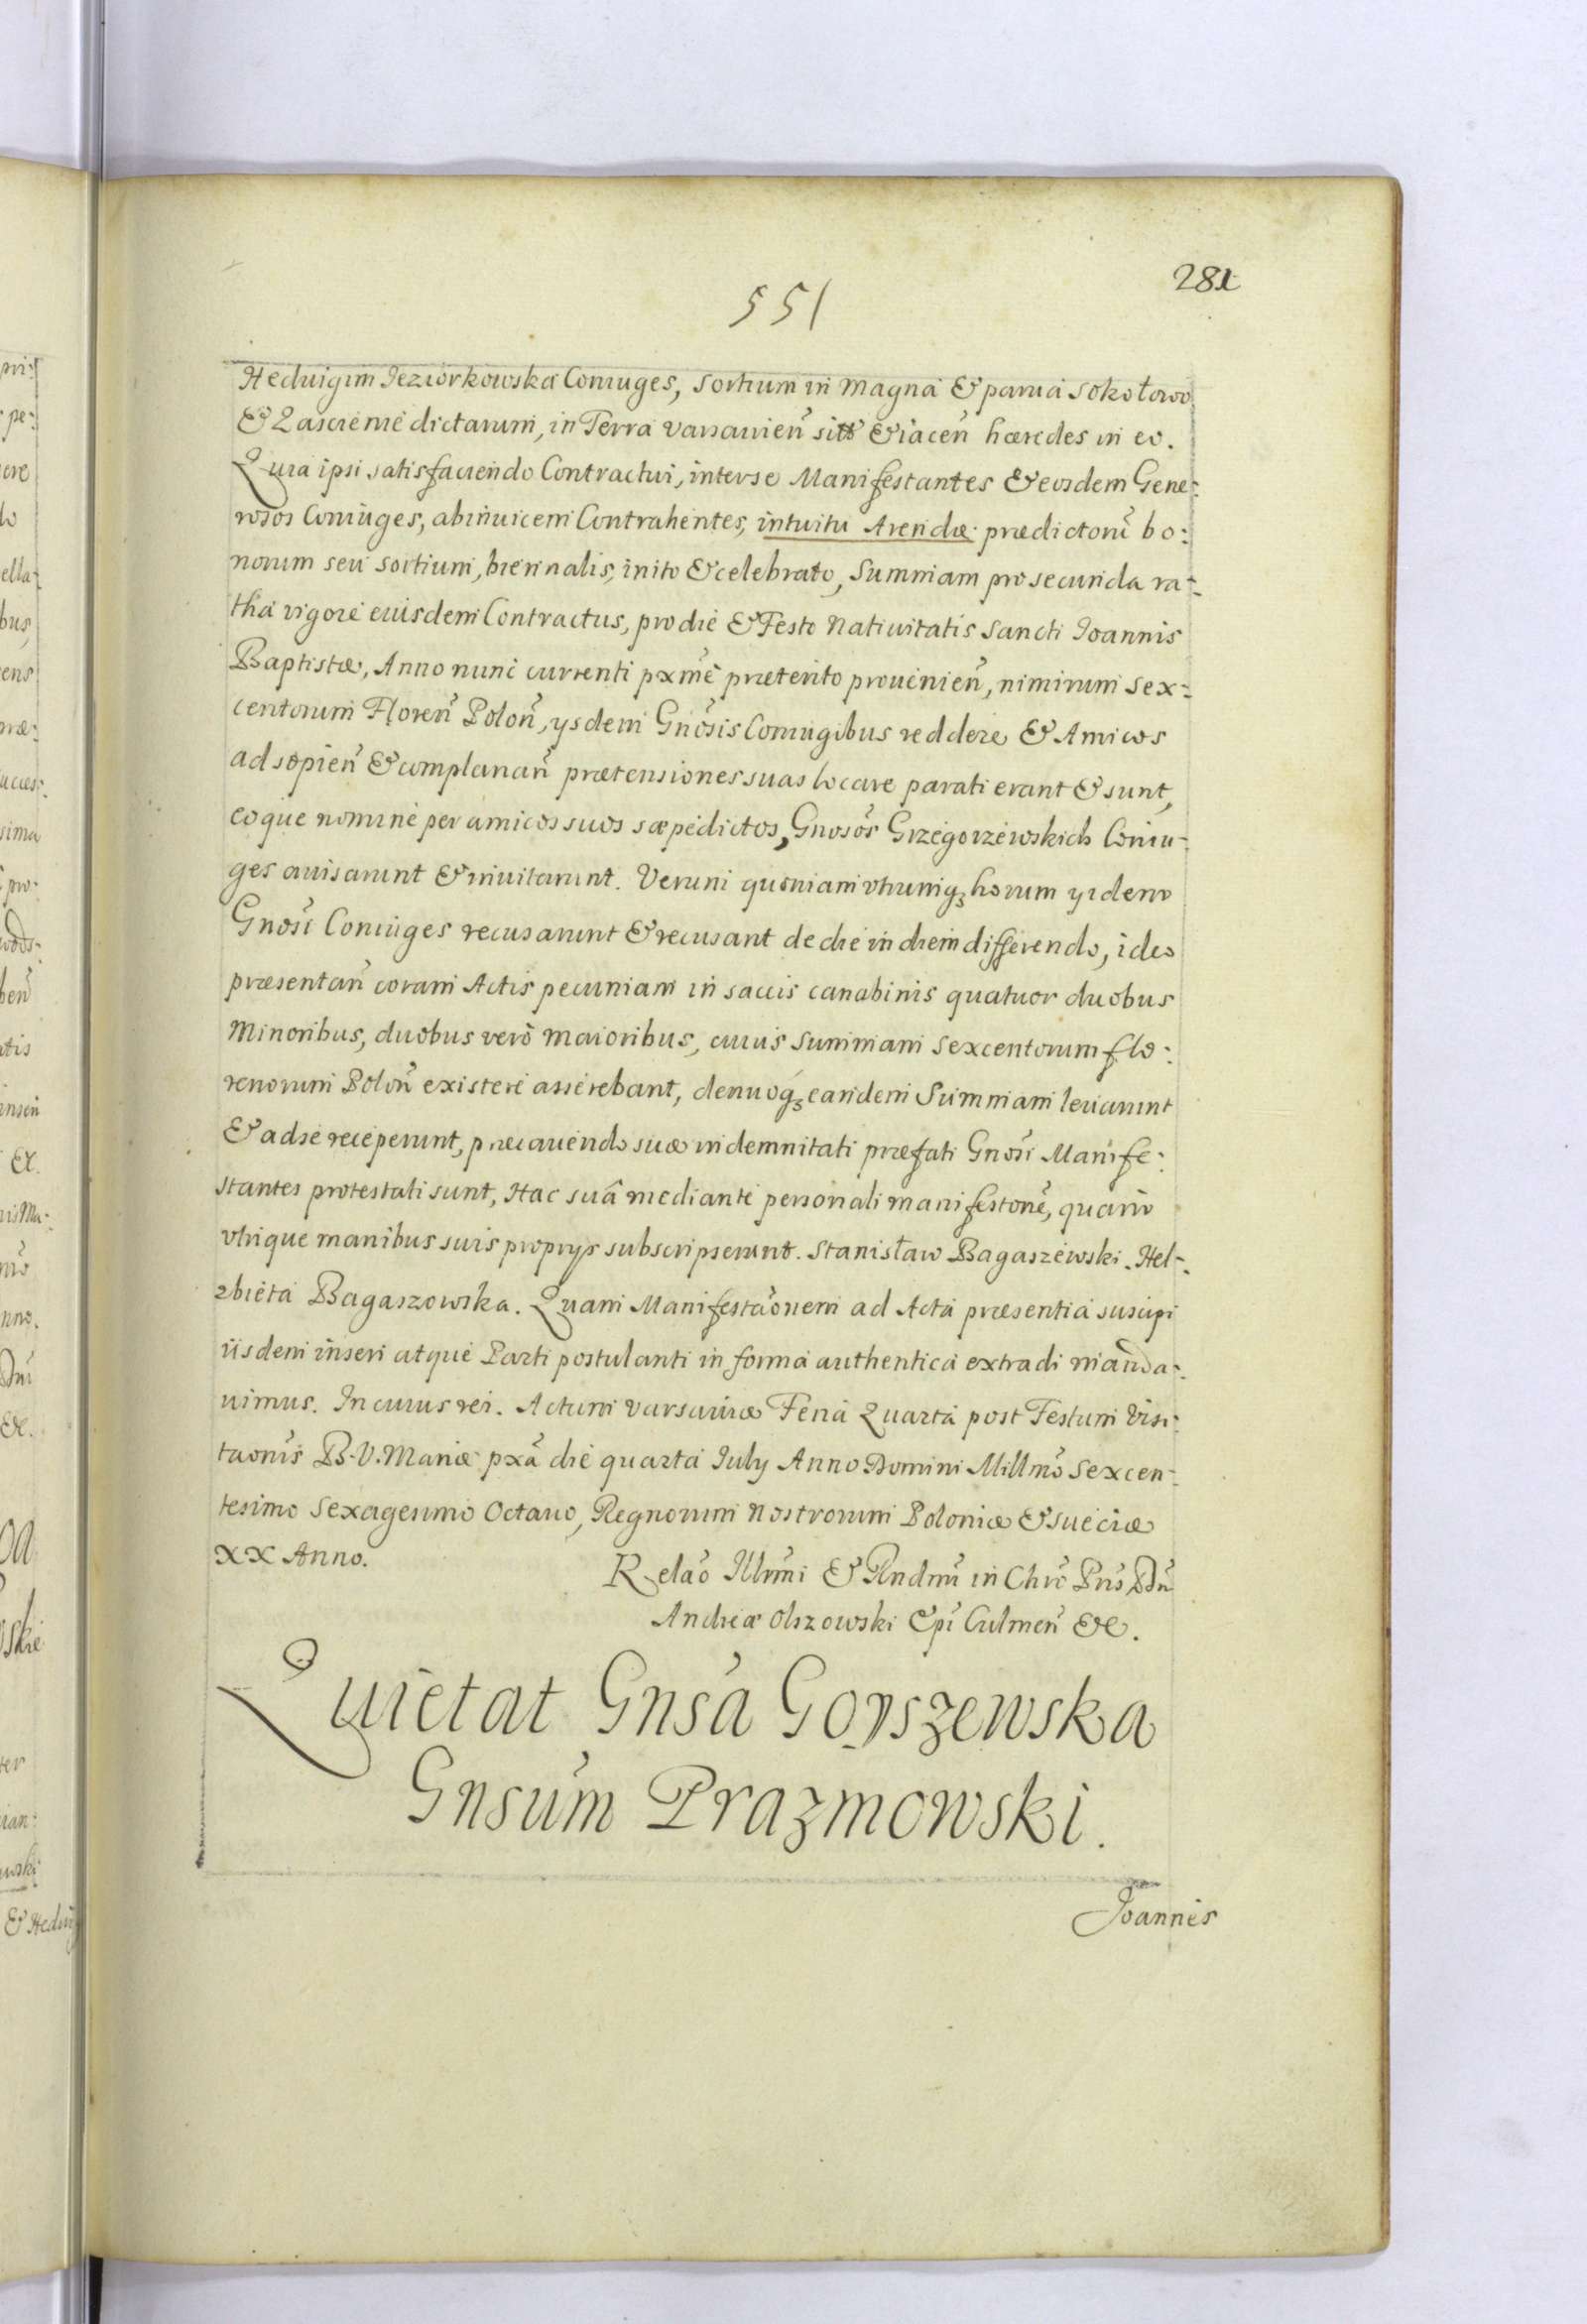 281
551
Heduigim Jeziorkowska Coniuges, sortium in Magna & parua Sokołowo
& Lascienie dictarum, in Terra Varsauien̄ sitt & iacen̄ hæredes in eo.
Quia ipsi satisfaciendo Contractui, interse Manifestantes & eosdem Gene:
rosos Coniuges, abinuicem Contrahentes, intuitu Arendæ prædictorū bo:
norum seu sortium, biennalis, inito & celebrato, Summam pro secunda ra-
tha vigore eiusdem Contractus, pro die & Festo Natiuitatis Sancti Ioannis
Baptistæ, Anno nunc currenti pxmē præterito prouenien̄, nimirum Sex-
centorum Floren̄ Polon̄, ysdem Gnōsis Coniugibus reddere & Amicos
ad sopien̄ & complanan̄ prætensiones suas locare parati erant & sunt,
eoque nomine per amicos suos sæpedictos, Gnosōs Grzegorzewskich Coniu-
ges auisarunt & inuitarunt. Verum quoniam vtrumqȝ horum yidem
Gnosī Coniuges recusarunt & recusant de die in diem differendo, ideo
præsentan̄ coram Actis pecuniam in saccis canabinis quatuor duobus
Minoribus, duobus verò Maioribus, cuius Summam sexcentorum flo:
renorum Polon̄ existere asserebant, denuoqȝ eandem Summam leuarunt
& ad se receperunt, præcauendo suæ indemnitati præfati Gnōsi Manife:
stantes protestati sunt, Hac suâ mediante personali manifestonē, quam
vtrique manibus suis proprys subscripserunt. Stanisław Bagaszewski. Hel-
zbieta Bagaszowska. Quam Manifestaōnem ad Acta præsentia suscipi
iisdem inseri atque Parti postulanti in forma authentica extradi manda-
uimus. In cuius rei. Actum Varsauiæ Feria Quarta post Festum Visi:
taonis B. V. Mariæ pxā die quarta July Anno Domini Millmō Sexcen-
tesimo Sexagesimo Octauo, Regnorum Nostrorum Poloniæ & Sueciæ
XX Anno.
Relaō Illrmi & Rndmī in Chrō Pris Dn̄
Andreæ Olszowski Epī Culmen̄ &c.
Quietat Gnsā Gorszewska
Gnsūm Prazmowski.
Joannes